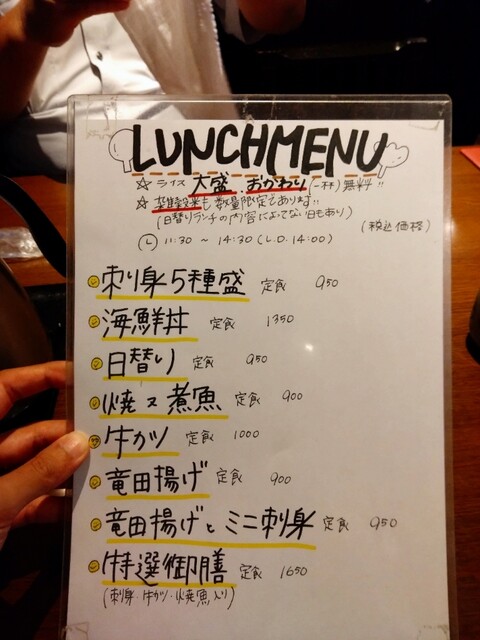 LUNCHMENU
☆ ライス 大盛、おかわり(一杯)無料!!
☆ 雑穀米も数量限定であります!!
(日替りランチの内容によってない日もあり)
(税込価格)
Ⓛ 11:30 ~ 14:30 (L.O.14:00)
刺り身5種盛 定食 950
海鮮丼 定食 1350
日替り 定食 950
焼又煮魚 定食 900
牛カツ 定食 1000
竜田揚げ 定食 900
竜田揚げとミニ刺身 定食 950
特選御膳 定食 1650
(刺身・牛カツ・焼魚入り)